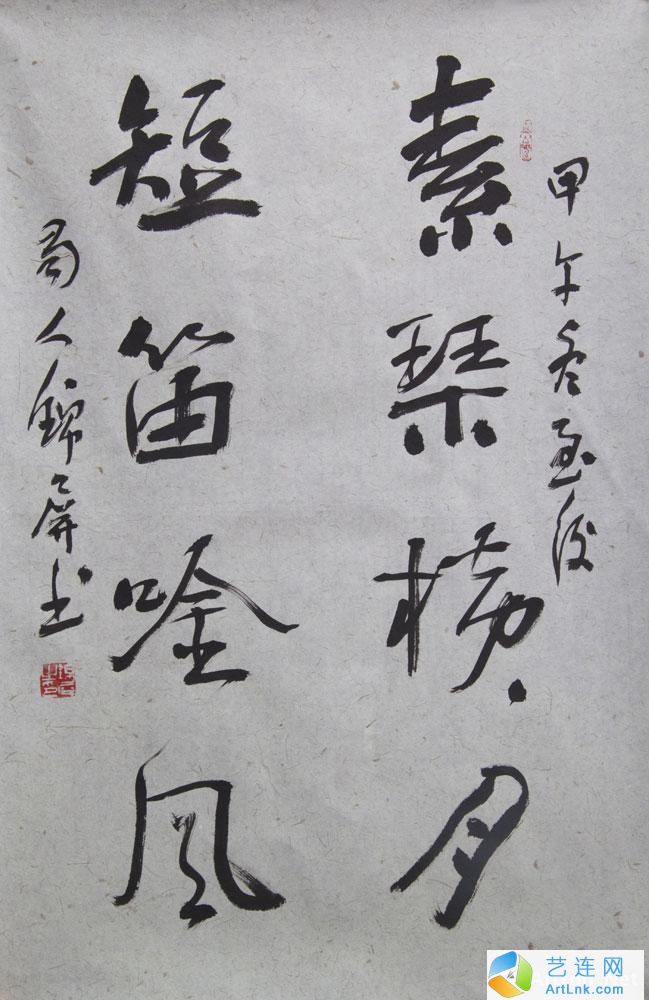 甲午冬至後
素琴横月
短笛唫风
蜀人錦屏书
艺连网
ArtLnk.com